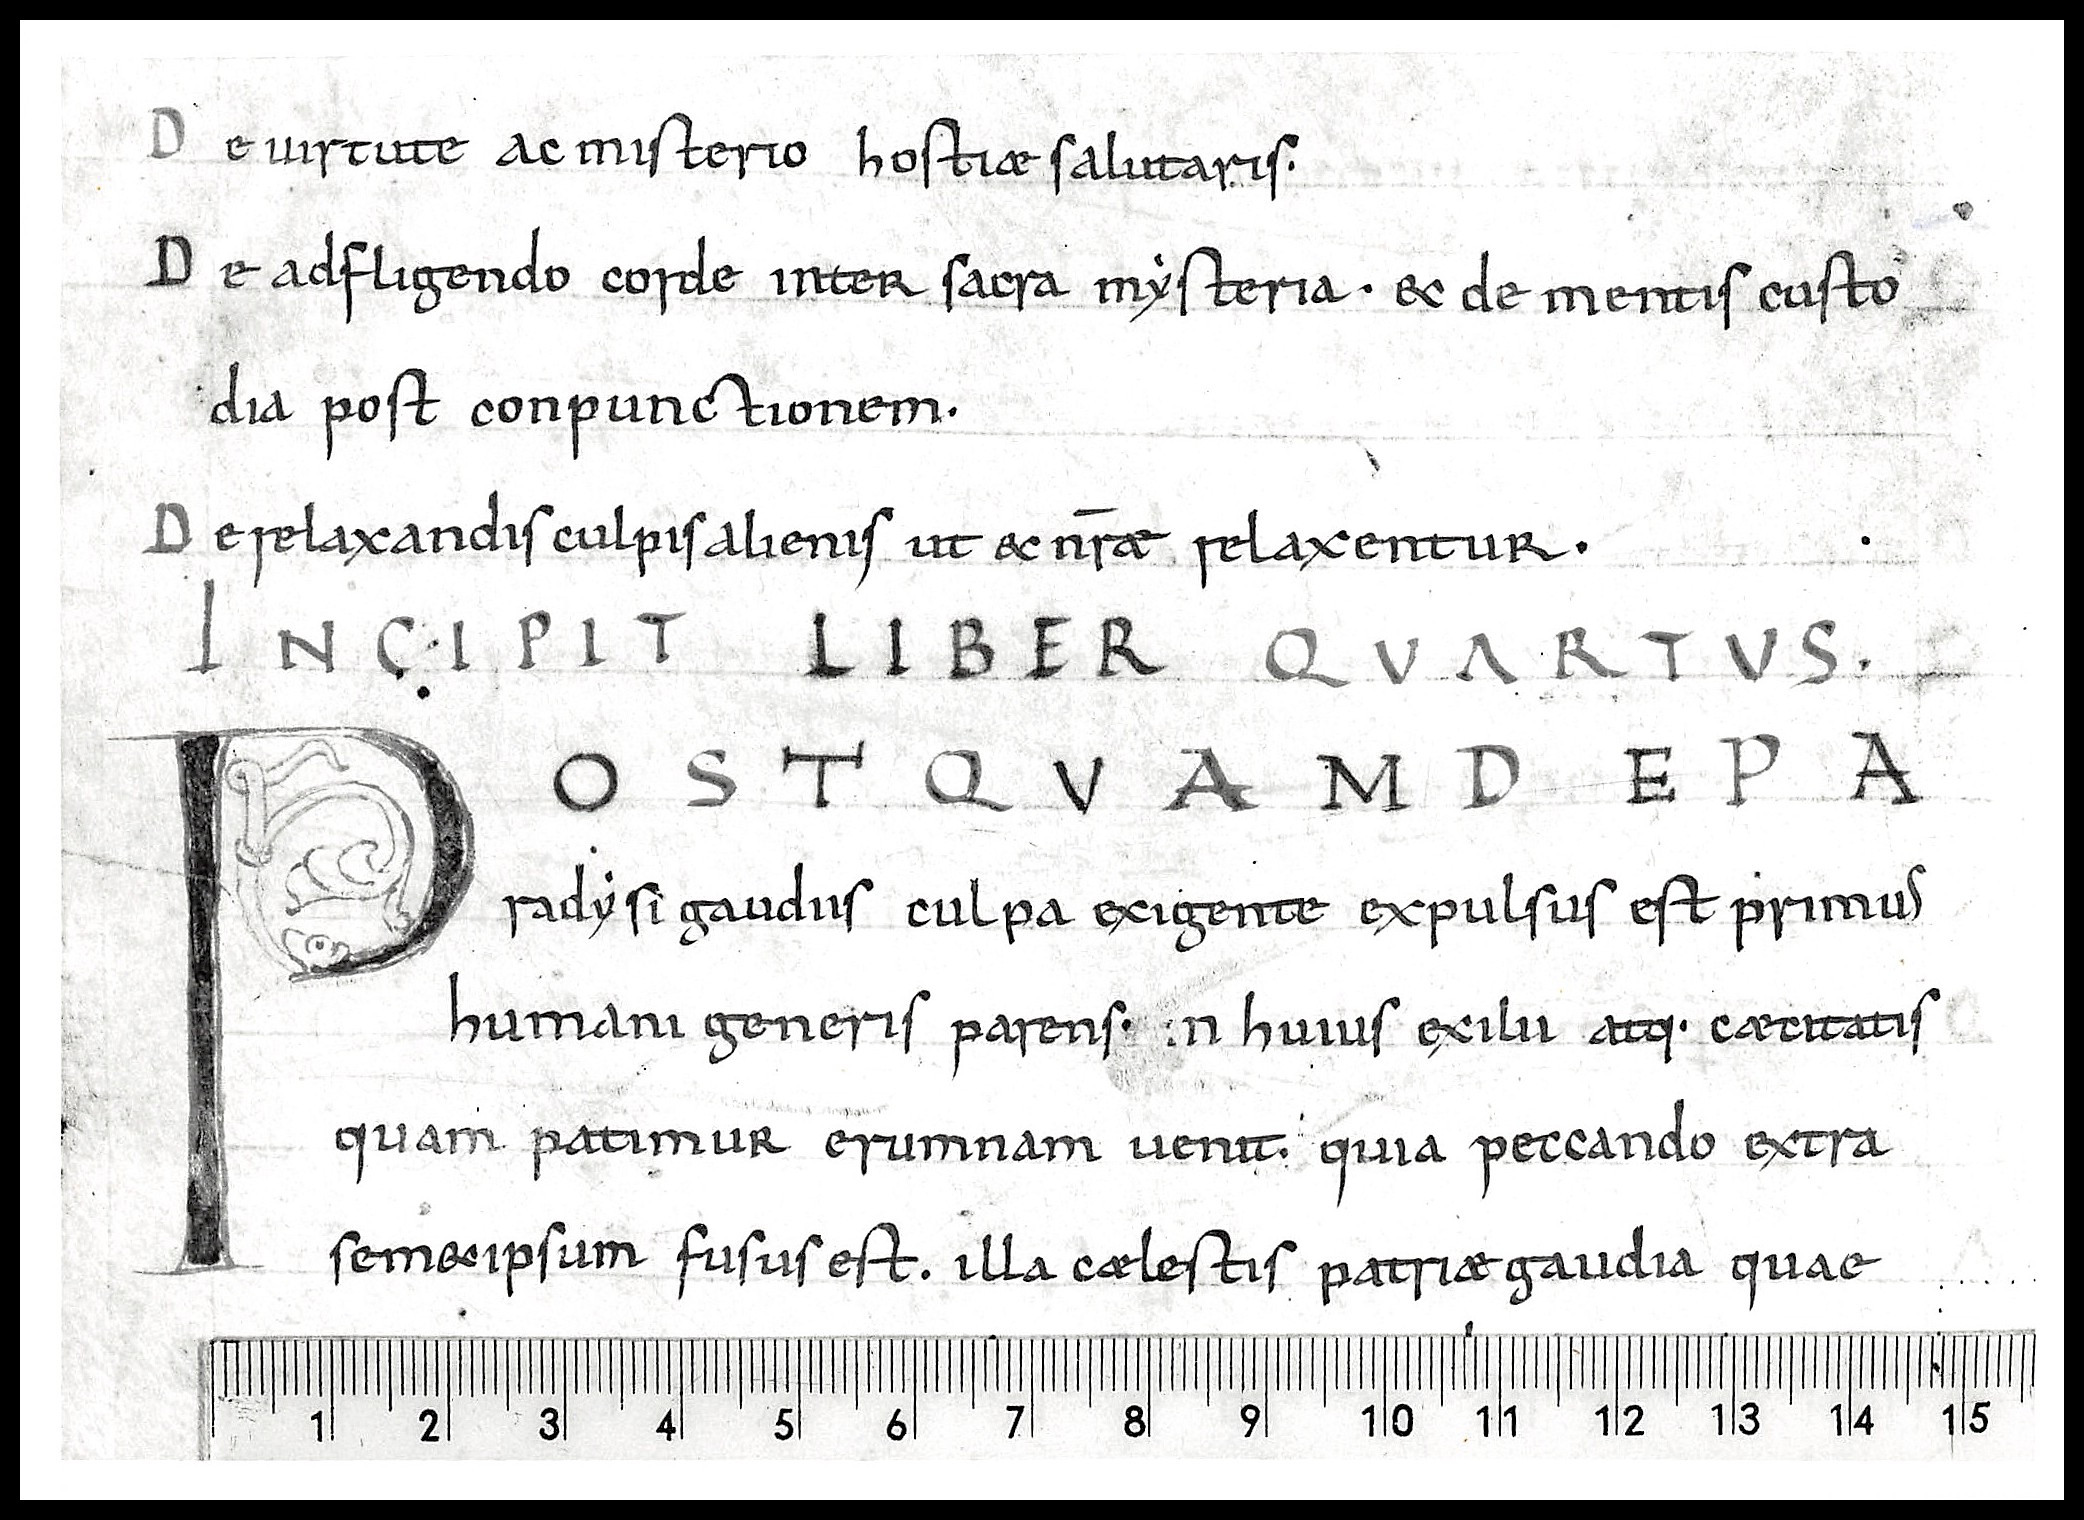 De uirtute ac misterio hostiæ salutaris.
De adfligendo corde inter sacra mẏsteria · & de mentis custo
dia post conpunctionem.
De relaxandis culpis alienis ut & nr̄æ relaxentur.
INCIPIT LIBER QVARTVS.
POSTQVAM DE PA
radẏsi gaudiis culpa exigente expulsus est primus
humani generis parens· in huius exilii atq· cæcitatis
quam patimur erumnam uenit. quia peccando extra
sem&ipsum fusus est. illa cælestis patriæ gaudia quae
1 2 3 4 5 6 7 8 9 10 11 12 13 14 15